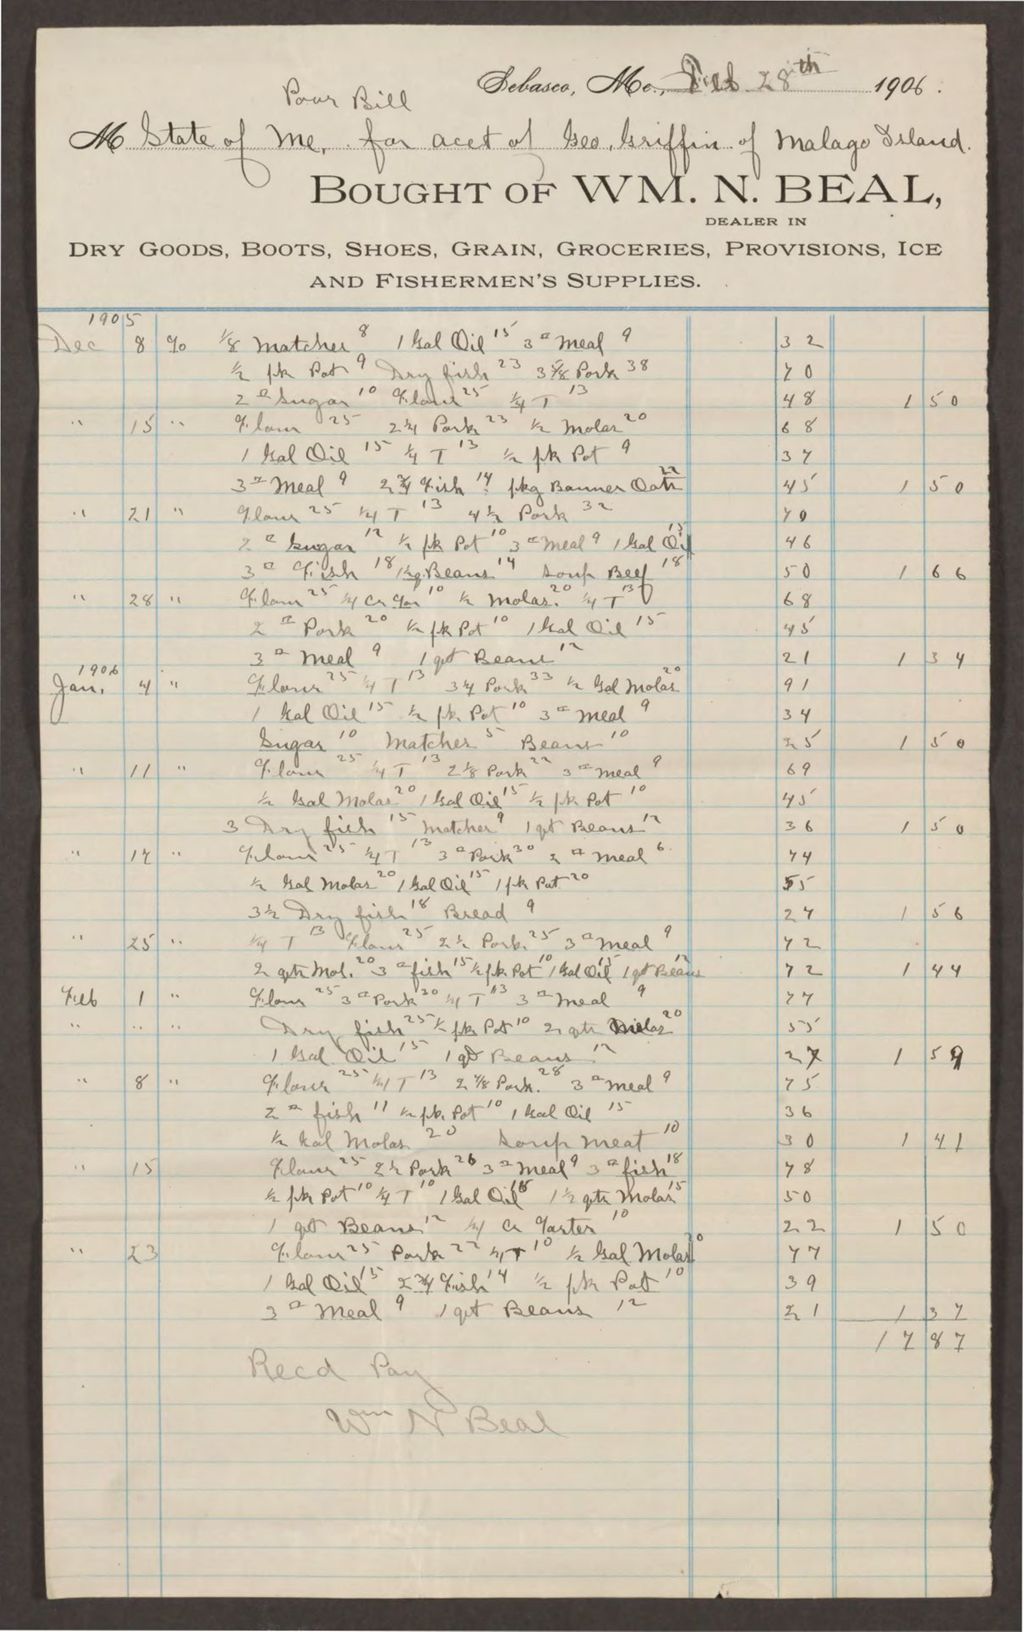 Poor Bill
Sebasco, Me., Feb 28th 1906.
M State of Me, for acct of Geo. Griffin of Malago Island.
BOUGHT OF WM. N. BEAL,
DEALER IN
DRY GOODS, BOOTS, SHOES, GRAIN, GROCERIES, PROVISIONS, ICE
AND FISHERMEN'S SUPPLIES.
1905
Dec 8 To 1/8 Matches 8 1 Gal Oil 15 3 # Meal 9 32
1/2 pk Pot 9 Dry fish 23 3 5/8 Pork 38 70
2 # Sugar 10 Flour 25 1/4 T 13 48 1 50
" 15 " Flour 25 2 1/4 Pork 23 1/2 Molas 20 68
1 Gal Oil 15 1/4 T 13 1/2 pk Pot 9 37
3 # Meal 9 2 3/4 Fish 14 pkg Banner Oats 22 45 1 50
" 21 " Flour 25 1/4 T 13 4 1/2 Pork 32 70
2 # Sugar 12 1/2 pk Pot 10 3 # Meal 9 1 Gal Oil 15 46
3 # Fish 18 1 qt Beans 14 Soup Beef 18 50 1 66
" 28 " Flour 25 1/4 Cr Tar 10 1/2 Molas. 20 1/4 T 13 68
2 # Pork 20 1/2 pk Pot 10 1 Gal Oil 15 45
3 # Meal 9 1 qt Beans 12 21 1 34
1906
Jan. 4 " Flour 25 1/4 T 13 3 1/4 Pork 33 1/2 Gal Molas 20 91
1 Gal Oil 15 1/2 pk Pot 10 3 # Meal 9 34
Sugar 10 Matches 5 Beans 10 25 1 50
" 11 " Flour 25 1/4 T 13 2 1/8 Pork 22 3 # Meal 9 69
1/2 Gal Molas 20 1 Gal Oil 15 1/2 pk Pot 10 45
3 Dry fish 15 Matches 9 1 qt Beans 12 36 1 50
" 17 " Flour 25 1/4 T 13 3 # Pork 30 2 # Meal 6 74
1/2 Gal Molas 20 1 Gal Oil 15 1 pk Pot 20 55
3 1/2 Dry fish 18 Bread 9 27 1 56
" 25 " 1/4 T 13 Flour 25 2 1/2 Pork 25 3 # Meal 9 72
2 qts Mol. 20 3 # fish 15 1/2 pk Pot 10 1 Gal Oil 15 1 qt Beans 12 72 1 44
Feb 1 " Flour 25 3 # Pork 30 1/4 T 13 3 # Meal 9 77
" " " Dry fish 25 1/2 pk Pot 10 2 qts Molas 20 55
1 Gal Oil 15 1 qt Beans 12 27 1 59
" 8 " Flour 25 1/4 T 13 2 7/8 Pork. 28 3 # Meal 9 75
2 # fish 11 1/2 pk Pot 10 1 Gal Oil 15 36
1/2 Gal Molas 20 Soup Meat 10 30 1 41
" 15 Flour 25 2 1/2 Pork 26 3 # Meal 9 3 # fish 18 78
1/2 pk Pot 10 1/4 T 10 1 Gal Oil 15 1 1/2 qts Molas 15 50
1 qt Beans 12 1/4 Cr Tarter 10 22 1 50
" 23 Flour 25 Pork 22 1/4 T 10 1/2 Gal Molas 20 77
1 Gal Oil 15 2 3/4 Fish 14 1/2 pk Pot 10 39
3 # Meal 9 1 qt Beans 12 21 1 37
17 87
Recd Pay
Wm N Beal